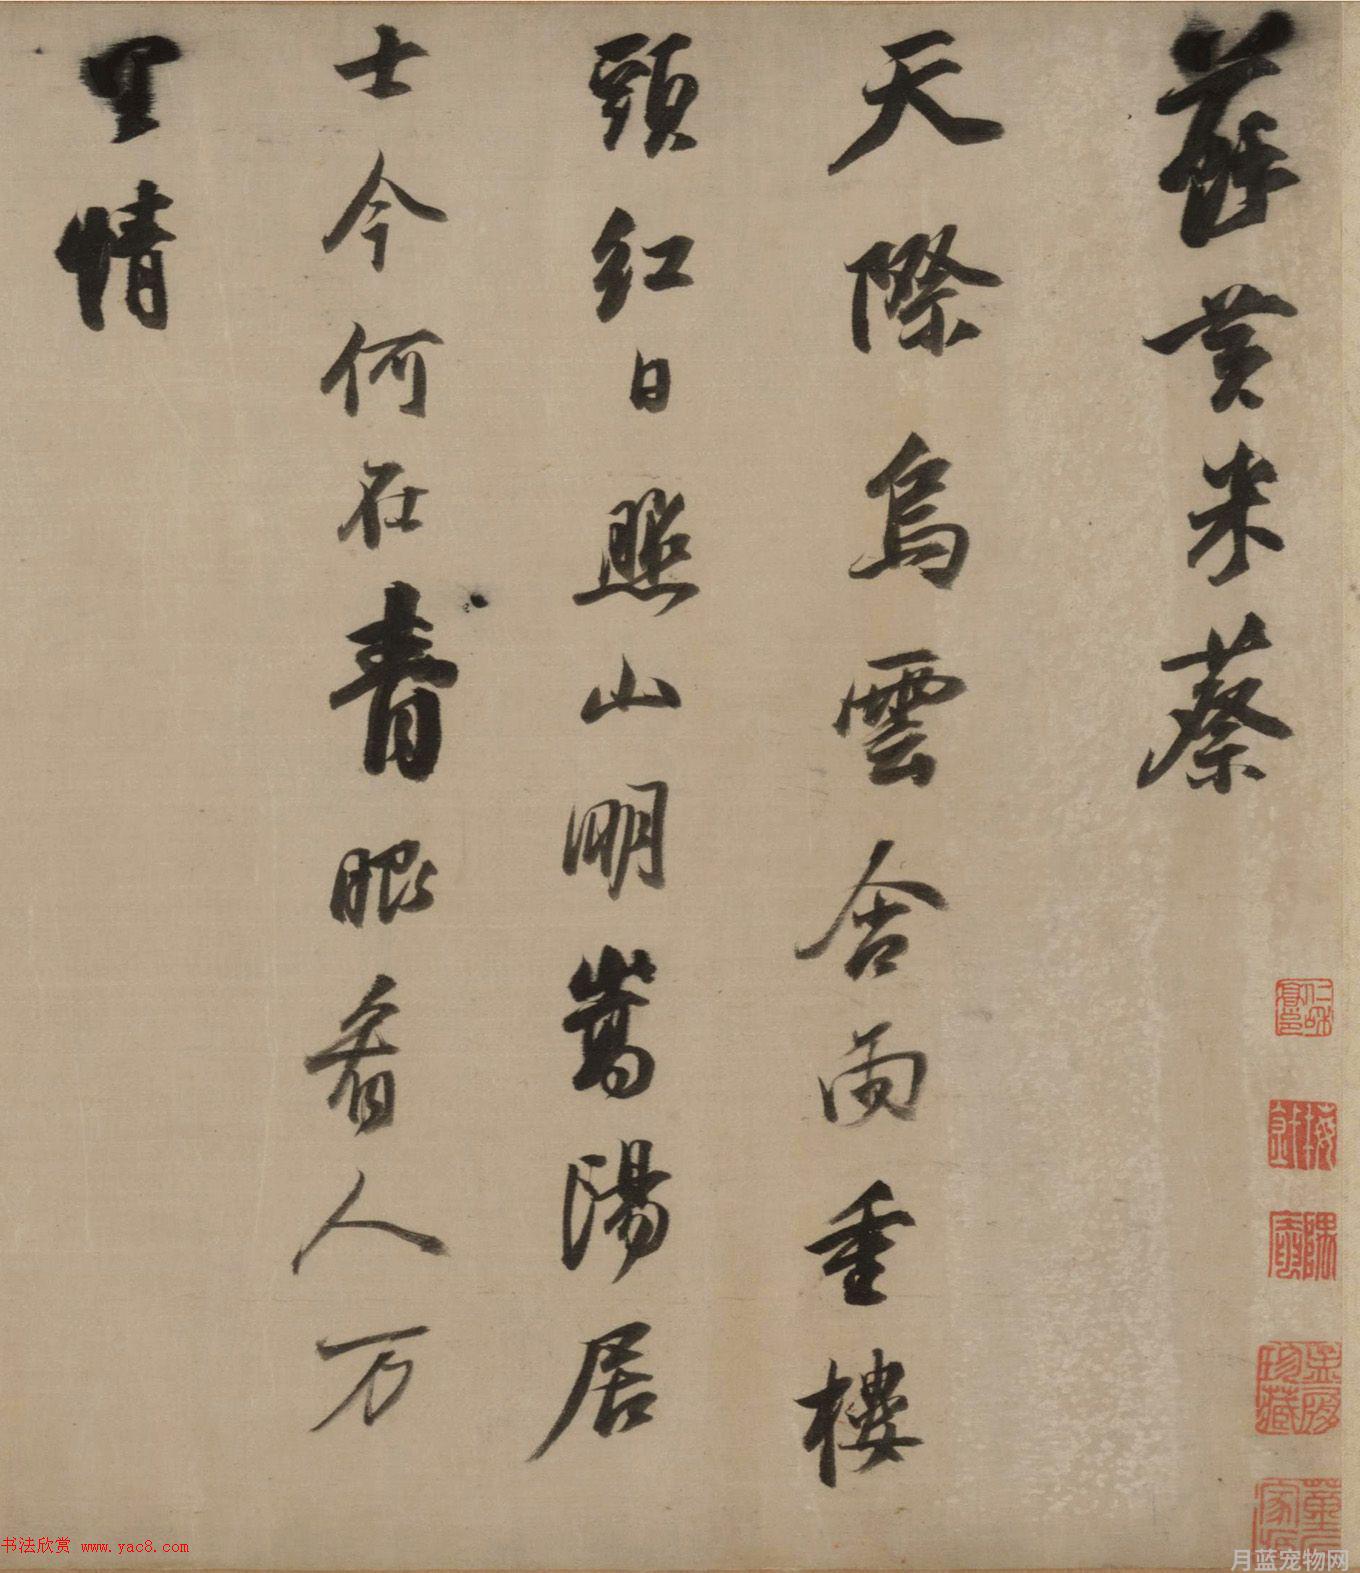 蘇黄米蔡
天際烏雲含雨重樓
頭紅日照山明嵩陽居
士今何在青眼看人万
里情
书法欣赏 www.yac8.com
月蓝宠物网